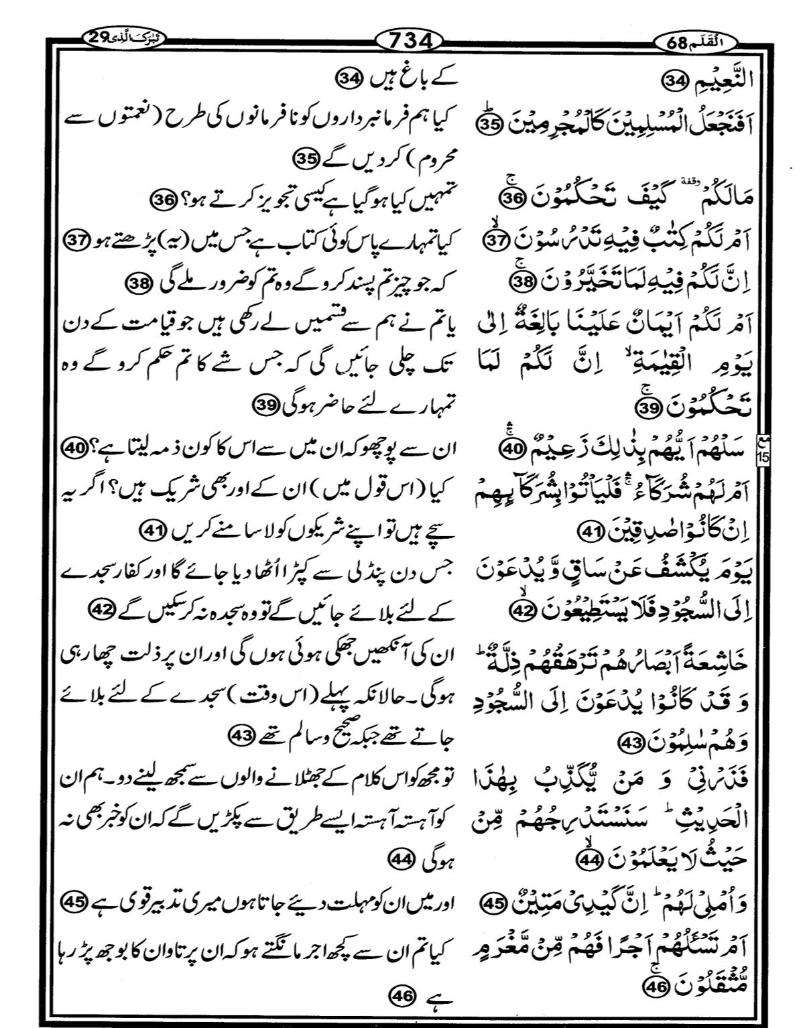 الۡقَلَم 68
734
تَبٰرَكَ الَّذِی 29
النَّعِيۡمِ 34
اَفَنَجۡعَلُ الۡمُسۡلِمِيۡنَ كَالۡمُجۡرِمِيۡنَؕ 35
مَا لَكُمۡوقفة كَيۡفَ تَحۡكُمُوۡنَۚ 36
اَمۡ لَكُمۡ كِتٰبٌ فِيۡهِ تَدۡرُسُوۡنَۙ 37
اِنَّ لَكُمۡ فِيۡهِ لَمَا تَخَيَّرُوۡنَۚ 38
اَمۡ لَكُمۡ اَيۡمَانٌ عَلَيۡنَا بَالِغَةٌ اِلٰى
يَوۡمِ الۡقِيٰمَةِۙ اِنَّ لَكُمۡ لَمَا
تَحۡكُمُوۡنَۚ 39
سَلۡهُمۡ اَيُّهُمۡ بِذٰلِكَ زَعِيۡمٌۚۛ 40
اَمۡ لَهُمۡ شُرَكَآءُۚۛ فَلۡيَاۡتُوۡا بِشُرَكَآئِهِمۡ
اِنۡ كَانُوۡا صٰدِقِيۡنَ 41
يَوۡمَ يُكۡشَفُ عَنۡ سَاقٍ وَّيُدۡعَوۡنَ
اِلَى السُّجُوۡدِ فَلَا يَسۡتَطِيۡعُوۡنَۙ 42
خَاشِعَةً اَبۡصَارُهُمۡ تَرۡهَقُهُمۡ ذِلَّةٌؕ
وَ قَدۡ كَانُوۡا يُدۡعَوۡنَ اِلَى السُّجُوۡدِ
وَهُمۡ سٰلِمُوۡنَ 43
فَذَرۡنِىۡ وَ مَنۡ يُّكَذِّبُ بِهٰذَا
الۡحَدِيۡثِؕ سَنَسۡتَدۡرِجُهُمۡ مِّنۡ
حَيۡثُ لَا يَعۡلَمُوۡنَۙ 44
وَاُمۡلِىۡ لَهُمۡؕ اِنَّ كَيۡدِىۡ مَتِيۡنٌ 45
اَمۡ تَسۡـَٔلُهُمۡ اَجۡرًا فَهُمۡ مِّنۡ مَّغۡرَمٍ
مُّثۡقَلُوۡنَۚ 46
کے باغ ہیں 34
کیا ہم فرمانبرداروں کو نافرمانوں کی طرح (نعمتوں سے
محروم) کر دیں گے 35
تمہیں کیا ہو گیا ہے کیسی تجویز کرتے ہو؟ 36
کیا تمہارے پاس کوئی کتاب ہے جس میں (یہ) پڑھتے ہو 37
کہ جو چیز تم پسند کرو گے وہ تم کو ضرور ملے گی 38
یا تم نے ہم سے قسمیں لے رکھی ہیں جو قیامت کے دن
تک چلی جائیں گی کہ جس شے کا تم حکم کرو گے وہ
تمہارے لئے حاضر ہوگی 39
ان سے پوچھو کہ ان میں سے اس کا کون ذمہ لیتا ہے؟ 40
کیا (اس قول میں) ان کے اور بھی شریک ہیں؟ اگر یہ
سچے ہیں تو اپنے شریکوں کو لا سامنے کریں 41
جس دن پنڈلی سے کپڑا اٹھا دیا جائے گا اور کفار سجدے
کے لئے بلائے جائیں گے تو وہ سجدہ نہ کر سکیں گے 42
ان کی آنکھیں جھکی ہوئی ہوں گی اور ان پر ذلت چھا رہی
ہوگی۔ حالانکہ پہلے (اس وقت) سجدے کے لئے بلائے
جاتے تھے جبکہ صحیح و سالم تھے 43
تو مجھ کو اس کلام کے جھٹلانے والوں سے سمجھ لینے دو۔ ہم ان
کو آہستہ آہستہ ایسے طریق سے پکڑیں گے کہ ان کو خبر بھی نہ
ہوگی 44
اور میں ان کو مہلت دیئے جاتا ہوں میری تدبیر قوی ہے 45
کیا تم ان سے کچھ اجر مانگتے ہو کہ ان پر تاوان کا بوجھ پڑ رہا
ہے 46
مع
15